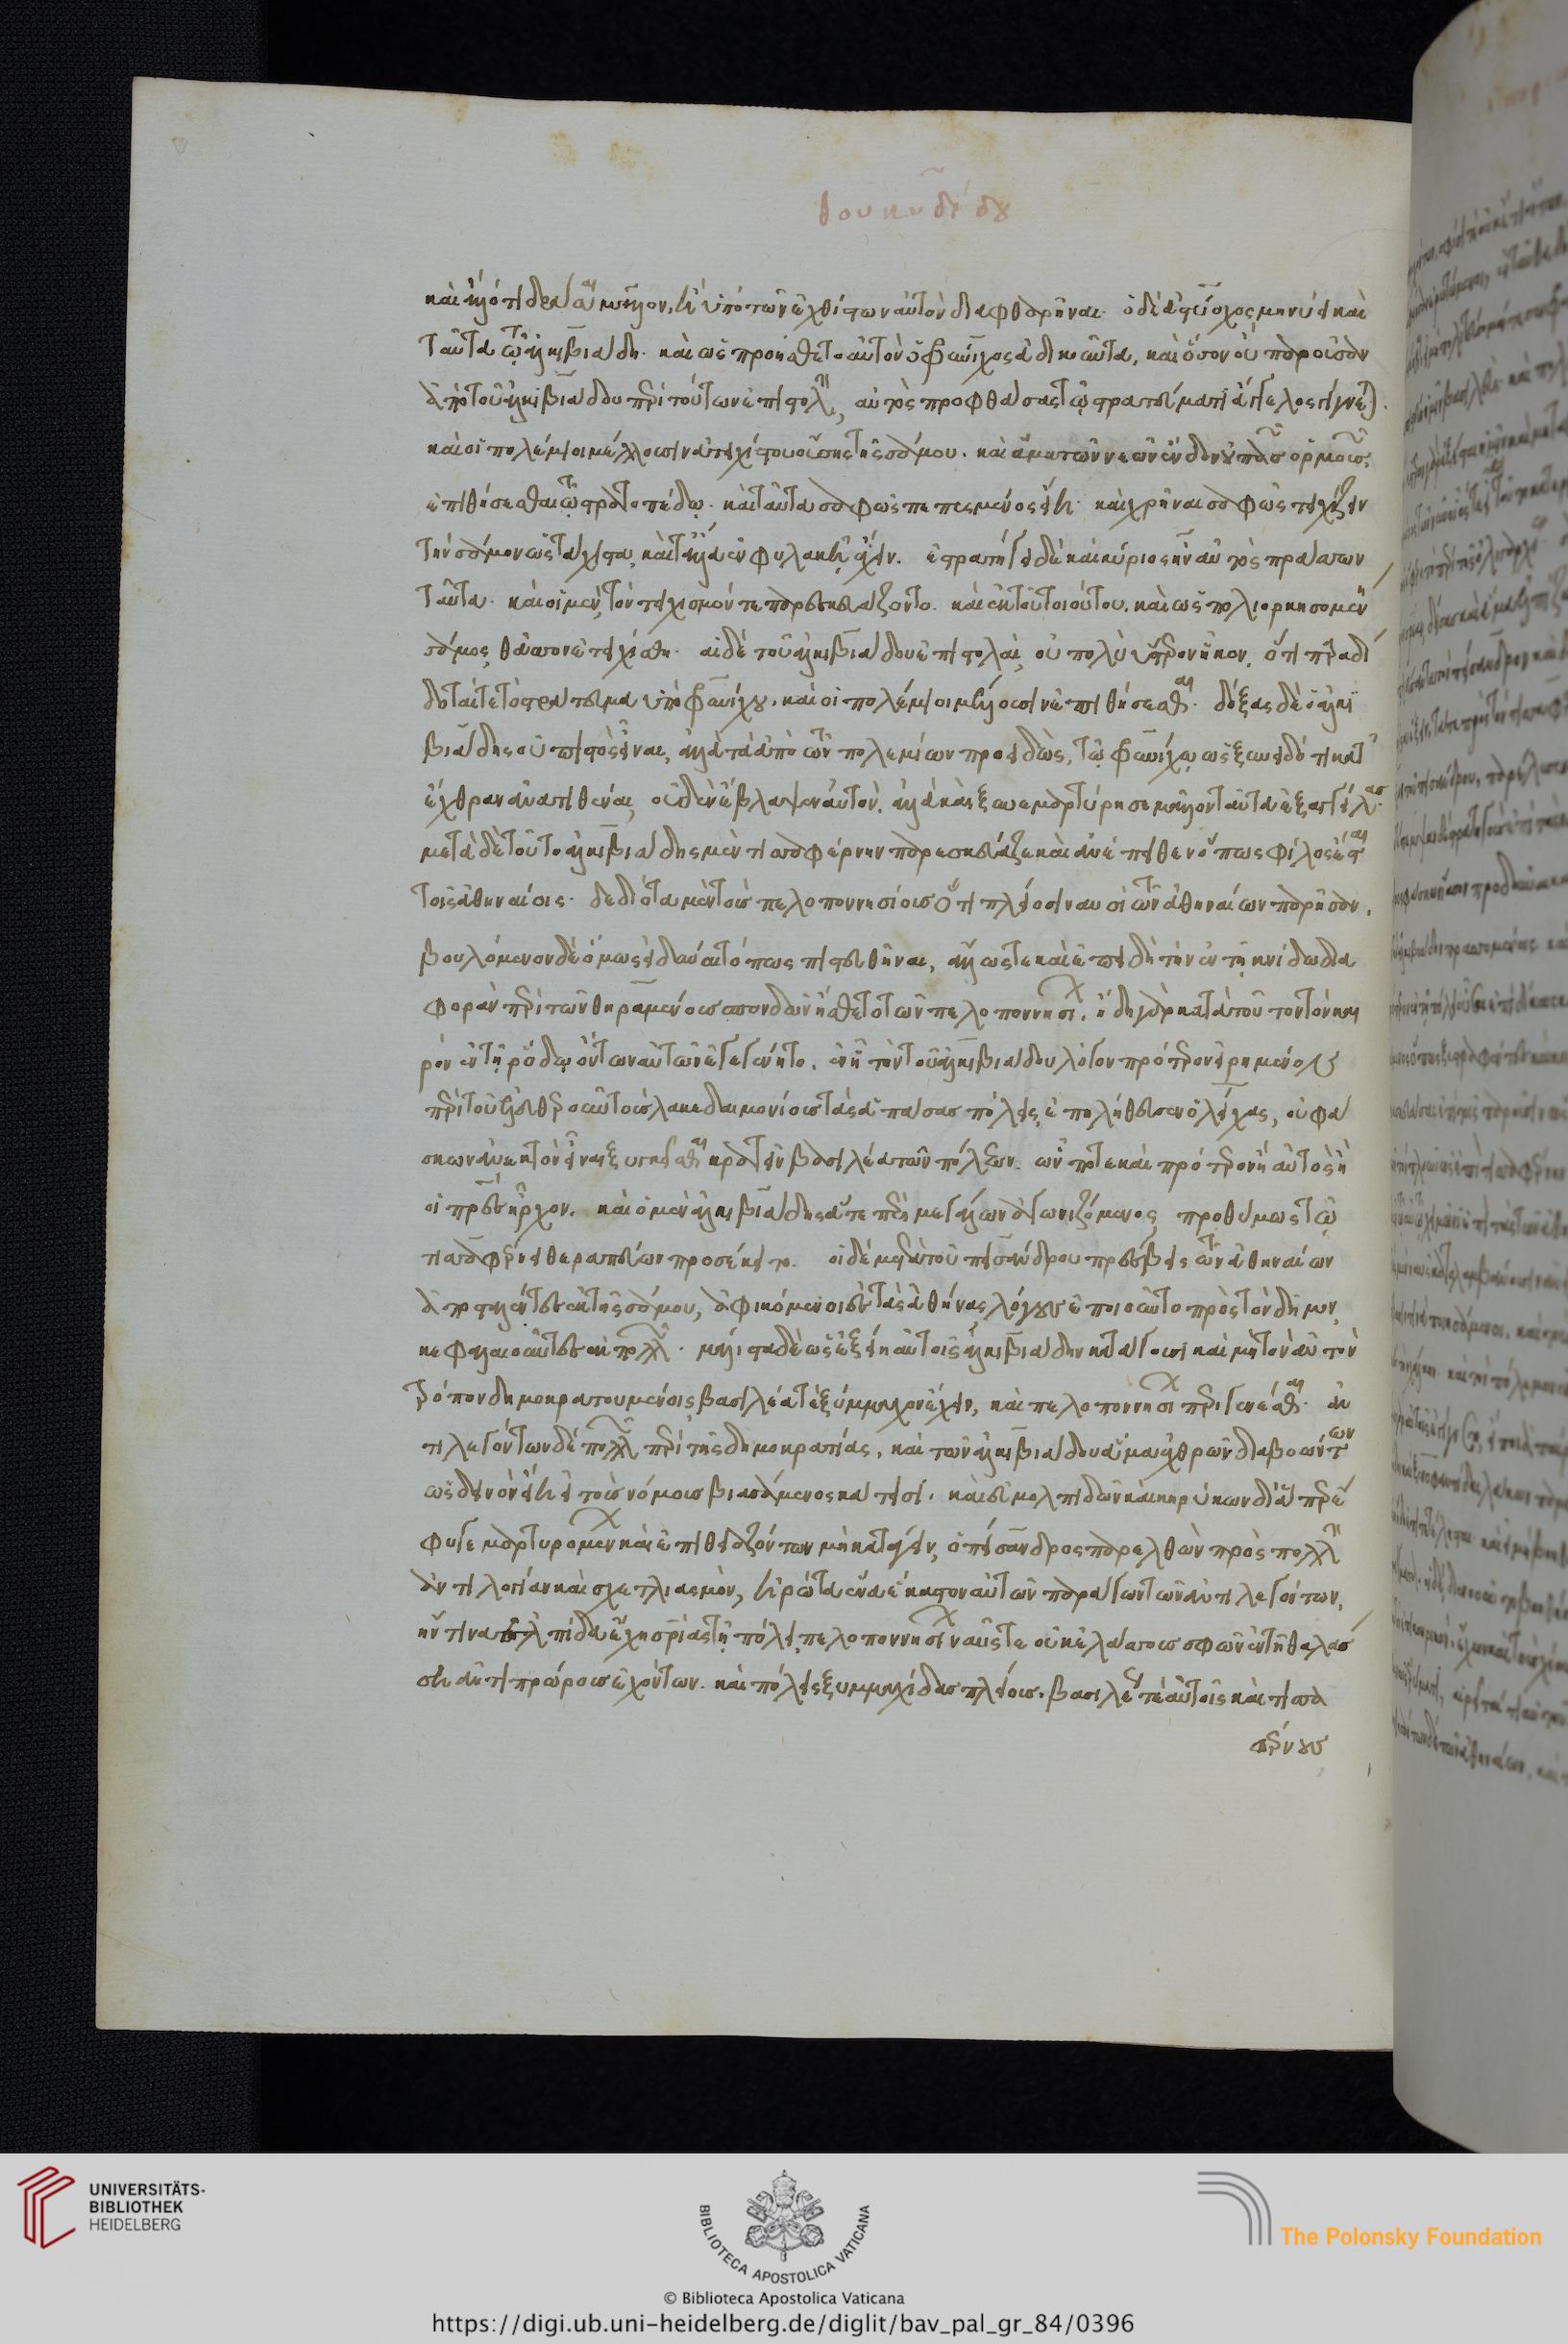 θουκυδίδου
καὶ ἄλλό τι δρᾶσαι μᾶλλον, ἢ ὑπὸ τῶν ἐχθίστων αὐτὸν διαφθαρῆναι. ὁ δὲ ἀστύοχος μηνύει καὶ
ταῦτα τῷ ἀλκιβιάδη. καὶ ὡς προήσθετο αὐτὸν ὁ φρύνιχος ἀδικοῦντα, καὶ ὅσον οὐ παροῦσαν
ἀπὸ τοῦ ἀλκιβιάδου περὶ τούτων ἐπιστολὴν, αὐτὸς προφθάσας τῷ στρατεύματι ἄγγελος γίγνεται.
καὶ οἱ πολέμιοι μέλλουσιν ἀτειχίστου οὔσης τῆς σάμου. καὶ ἅμα τῶν νεῶν ἔνδον οὐ πασῶν ὁρμουσῶν,
ἐπιθήσεσθαι τῷ στρατοπέδῳ. καὶ ταῦτα σαφῶς πεπεισμένος εἴη. καὶ χρῆναι σαφῶς τειχίζειν
τὴν σάμον ὡς τάχιστα, καὶ τἄλλα ἐν φυλακῇ ἔχειν. ἐστρατήγει δὲ καὶ κύριος ἦν αὐτὸς πράσσων
ταῦτα. καὶ οἱ μὲν, τὸν τειχισμόν τε παρεσκευάζοντο. καὶ ἐκ τοῦ τοιούτου. καὶ ὡς πολιορκησομέν
σάμος θᾶσσον ἐτειχίσθη. αἱ δὲ τοῦ ἀλκιβιάδου ἐπιστολαὶ, οὐ πολὺ ὕστερον ἧκον, ὅτι προδί
δοταί τε τὸ στράτευμα ὑπὸ φρυνίχου. καὶ οἱ πολέμιοι μέλλουσιν ἐπιθήσεσθαι. δόξας δὲ ὁ ἀλκι
βιάδης οὐ πιστὸς εἶναι, ἀλλὰ τὰ ἀπὸ τῶν πολεμίων προειδὼς, τῷ φρυνίχῳ ὡς ξυνειδότι κατ᾽
ἔχθραν ἀνατιθέναι, οὐδὲν ἔβλαψεν αὐτὸν. ἀλλὰ καὶ ξυνεμαρτύρησε μᾶλλον ταῦτα ἐξαγγείλας.
μετὰ δὲ τοῦτο ἀλκιβιάδης μὲν τισαφέρνην παρεσκεύαζε καὶ ἀνέπειθεν ὅπως φίλος ἔσται
τοῖς ἀθηναίοις. δεδιότα μὲν τοὺς πελοποννησίους ὅτι πλείοσι ναυσὶ τῶν ἀθηναίων παρῆσαν.
βουλόμενον δὲ ὅμως εἰ δύναιτό πως πιστευθῆναι, ἄλλως τε καὶ ἐπειδὴ τὴν ἐν τῇ κνίδω δια
φορὰν περὶ τῶν θηραμένους σπονδῶν ἤσθετο τῶν πελοποννησίων. ἤδη γὰρ κατὰ τοῦτον τὸν και
ρὸν ἐν τῇ ῥόδῳ ὄντων αὐτῶν ἐγεγένητο. ἐν ᾗ τὸν τοῦ ἀλκιβιάδου λόγον πρότερον εἰρημένον
περὶ τοῦ ἐλευθεροῦν τοὺς λακεδαιμονίους τὰς ἁπάσας πόλεις, ἐπαλήθευσεν ὁ λίχας, οὐ φά
σκων ἀνεκτὸν εἶναι ξυγκεῖσθαι κρατεῖν βασιλέα τῶν πόλεων. ὧν ποτε καὶ πρότερον ἢ αὐτὸς ἢ
οἱ πατέρες ἦρχον. καὶ ὁ μὲν ἀλκιβιάδης ἅτε περὶ μεγάλων ἀγωνιζόμενος, προθύμως τῷ
τισαφέρνει θεραπεύων προσέκειτο. οἱ δὲ μετὰ τοῦ πεισάνδρου πρέσβεις τῶν ἀθηναίων
ἀποσταλέντες ἐκ τῆς σάμου, ἀφικόμενοι ἐς τὰς ἀθήνας, λόγους ἐποιοῦντο πρὸς τὸν δῆμον,
κεφαλαιοῦντες ἐκ πολλῶν. μάλιστα δὲ ὡς ἐξείη αὐτοῖς ἀλκιβιάδην καταγαγοῦσι καὶ μὴ τὸν αὐτὸν
τρόπον δημοκρατουμένοις, βασιλέα τε ξύμμαχον ἔχειν, καὶ πελοποννησίων περιγενέσθαι. ἀν
τιλεγόντων δὲ πολλῶν περὶ τῆς δημοκρατίας, καὶ τῶν ἀλκιβιάδου ἅμα ἐχθρῶν διαβοώντων
ὡς δεινὸν εἴη εἰ τοὺς νόμους βιασάμενος κάτεισι. καὶ εὐμολπιδῶν καὶ κηρύκων δι᾽ ἅπερ ἔ
φυγε μαρτυρομένων καὶ ἐπιθειαζόντων μὴ κατάγειν, ὁ πείσανδρος παρελθὼν πρὸς πολλὴν
ἀντιλογίαν καὶ σχετλιασμὸν, ἠρώτα ἕνα ἕκαστον αὐτῶν παράγων τῶν ἀντιλεγόντων,
ἥντινα ἐλπίδα ἔχη σωτηρίας τῇ πόλει, πελοποννησίων ναῦς τε οὐκ ἐλάσσους σφῶν ἐν τῇ θαλάσ
ση ἀντιπρώρους ἐχόντων. καὶ πόλεις ξυμμαχίδας πλείους. βασιλέως τε αὐτοῖς καὶ τισα
φέρνους
UNIVERSITÄTS-
BIBLIOTHEK
HEIDELBERG
BIBLIOTECA APOSTOLICA VATICANA
The Polonsky Foundation
© Biblioteca Apostolica Vaticana
https://digi.ub.uni-heidelberg.de/diglit/bav_pal_gr_84/0396